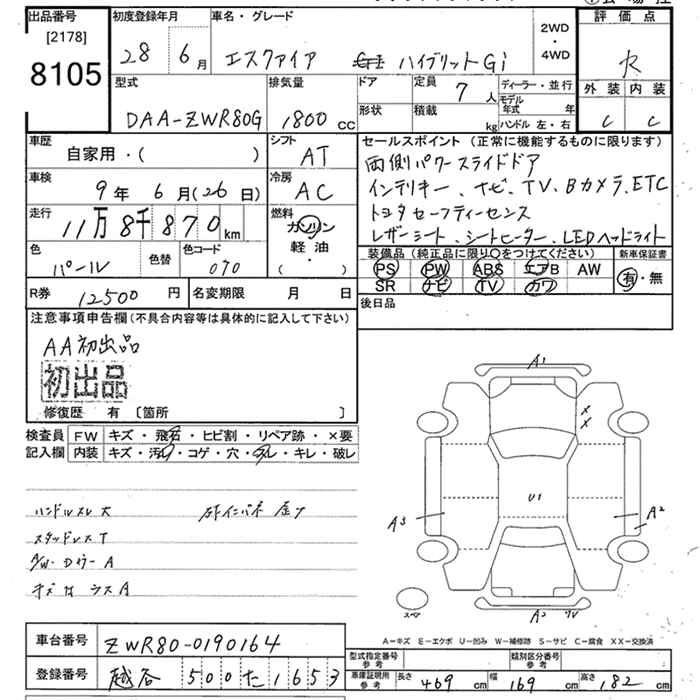 出品番号
[2178]
8105
初度登録年月
28年 6月
車名・グレード
エスクァイア ハイブリットGi
2WD
・
4WD
評価点
R
外装 内装
C C
型式
DAA-ZWR80G
排気量
1800 CC
ドア
定員 7 人
形状
積載 kg
ディーラー・並行
モデル年式 年
ハンドル 左・右
車歴
自家用・( )
シフト
AT
車検
9年 6月(26日)
冷房
AC
走行
11万8千870km
燃料
ガソリン
軽油
( )
色
パール
色替
色コード
070
セールスポイント(正常に機能するものに限ります)
両側パワースライドドア
インテリキー、ナビ、TV、Bカメラ、ETC
トヨタセーフティーセンス
レザーシート、シートヒーター、LEDヘッドライト
装備品(純正品に限り○をつけてください)
新車保証書
PS PW ABS エアB AW
SR ナビ TV カワ
有・無
R券 12500円
名変期限 月 日
後日品
注意事項申告欄(不具合内容等は具体的に記入して下さい)
AA初出品
初出品
修復歴 有 〔箇所 〕
検査員
記入欄
FW キズ・飛石・ヒビ割・リペア跡・×要
内装 キズ・汚れ・コゲ・穴・スレ・キレ・破レ
ハンドルスレ大
スタッドレスT
A/W・DカラーA
A1
U1
A3
A2
A2
スペア
A-キズ E-エクボ U-凹み W-補修跡 S-サビ C-腐食 XX-交換済
車台番号 ZWR80-0190164
登録番号 越谷 500 た 1653
型式指定番号
参考
類別区分番号
参考
車庫証明用
参考
長さ 469 cm 幅 169 cm 高さ 182 cm